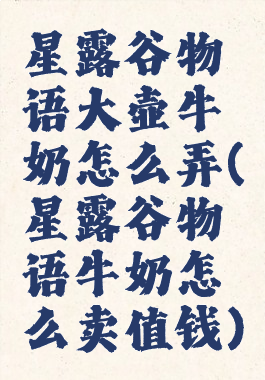 星露谷物
语大壶牛
奶怎么弄(
星露谷物
语牛奶怎
么卖值钱)